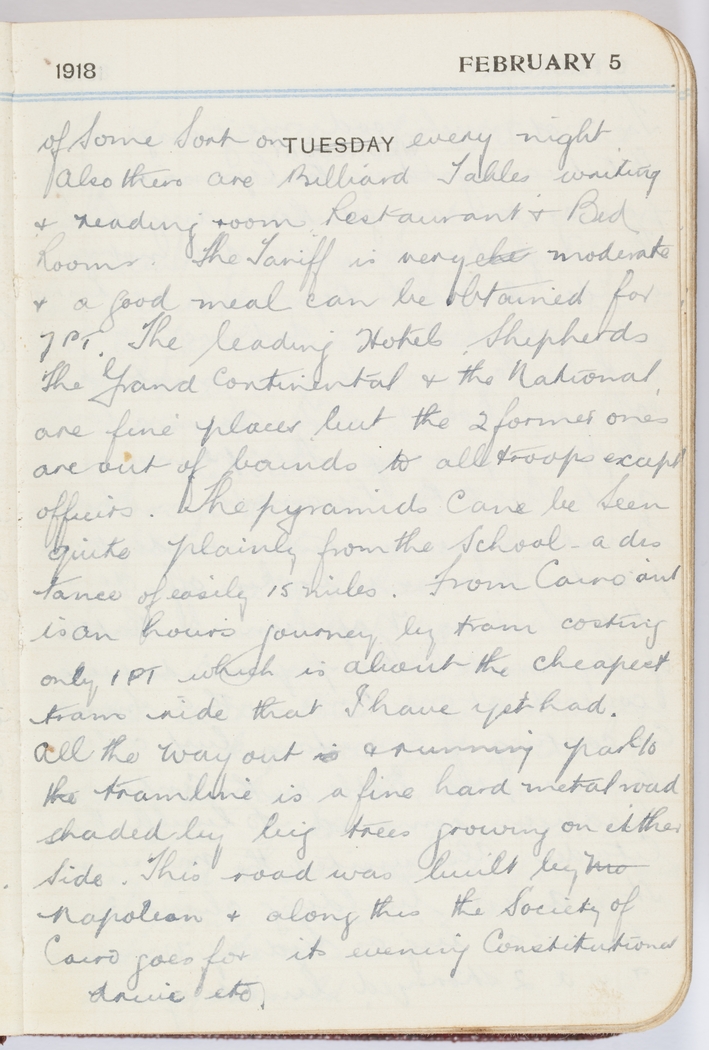 1918 FEBRUARY 5
of Some Sort on TUESDAY every night
Also there are Billiard Tables writing
& reading room Restaurant & Bed
Rooms. The Tariff is very che moderate
& a good meal can be obtained for
7 PT. The leading Hotels Shepherds
The Grand Continental & the National,
are fine places but the 2 former ones
are out of bounds to all troops except
officers. The pyramids cane be seen
quite plainly from the School - a dis
tance of easily 15 miles. From Cairo out
is an hours journey by tram costing
only 1 PT which is about the cheapest
tram ride that I have yet had.
All the way out is & running par to
the tramline is a fine hard metal road
shaded by big trees growing on either
Side. This road was built by
Napolean & along this the Society of
Cairo goes for its evening Constitutional
drive etc.